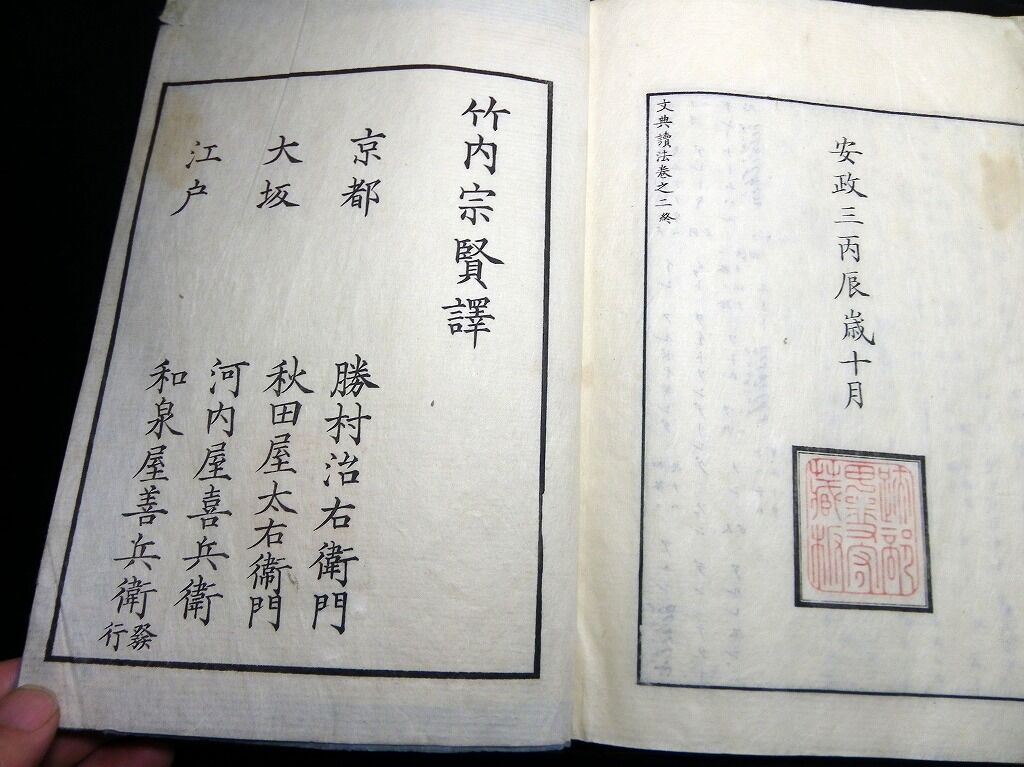 安政三丙辰歳十月
文典讀法卷之二終
竹内宗賢譯
京都 勝村治右衛門
大坂 秋田屋太右衛門
河内屋喜兵衛
江戸 和泉屋善兵衛
發行